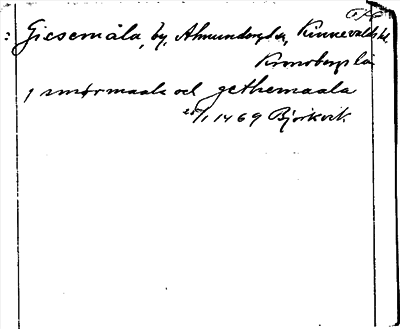 : Giesemåla, by, Almundsryd sn, Kinnevalds hd
Kronobergs län
j smørmaala och gethemaala
25/1 1469 Björkvik.